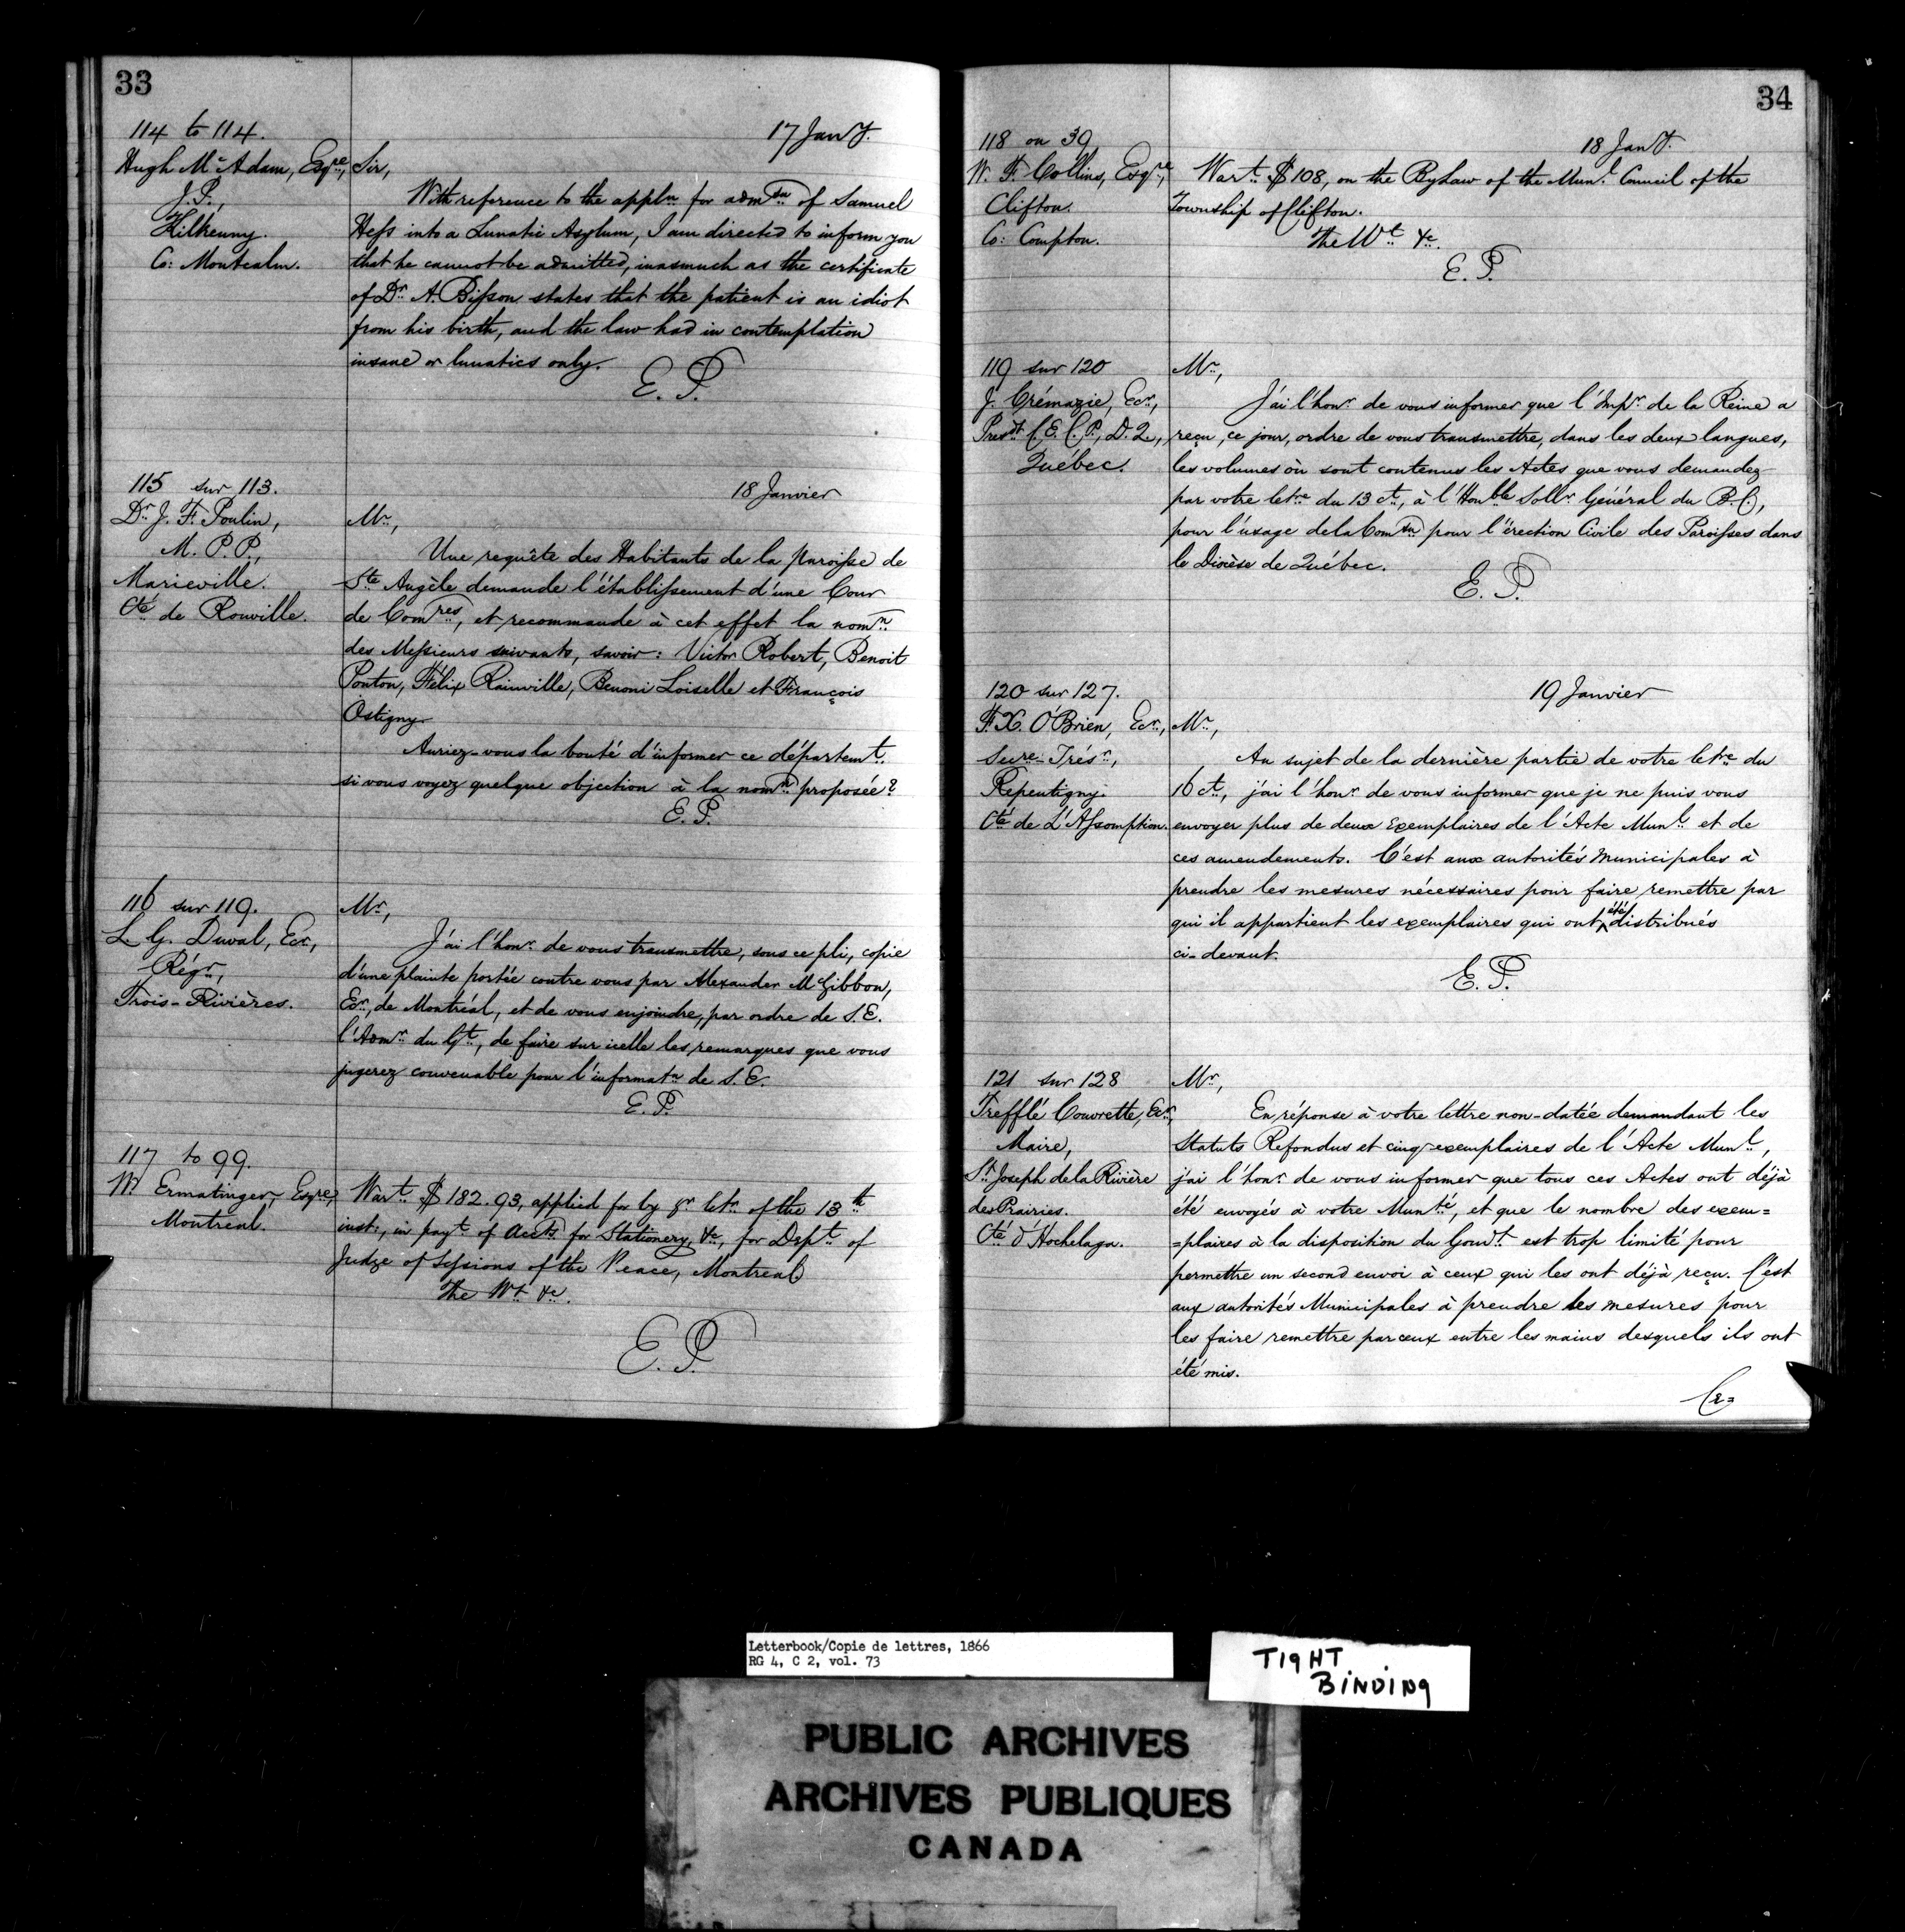 33
114 to 114.
17 Jany.
Hugh McAdam, Esqre,
J.P.,
Kilkenny.
Co: Montcalm.
Sir,
With reference to the appln for admsn of Samuel
Hess into a Lunatic Asylum, I am directed to inform you
that he cannot be admitted, inasmuch as the certificate
of Dr A. Bisson states that the patient is an idiot
from his birth, and the law had in contemplation
insane or lunatics only.
E. P.
115 sur 113.
18 Janvier
Dr J. F. Poulin,
M. P. P.,
Marieville.
Cté de Rouville.
Mr,
Une requête des Habitants de la paroisse de
Ste Angèle demande l'établissement d'une Cour
de Comres, et recommande à cet effet la nomn
des Messieurs suivants, savoir: Victor Robert, Benoit
Ponton, Félix Rainville, Benoni Loiselle et François
Ostigny.
Auriez-vous la bonté d'informer ce départemt.
si vous voyez quelque objection à la nomn proposée?
E. P.
116 sur 119.
L. G. Duval, Ecr,
Régr,
Trois-Rivières.
Mr,
J'ai l'honr de vous transmettre, sous ce pli, copie
d'une plainte portée contre vous par Alexander McGibbon,
Ecr, de Montréal, et de vous enjoindre, par ordre de S.E.
l'Admr du Gt, de faire sur icelle les remarques que vous
jugerez convenable pour l'informatn de S.E.
E. P.
117 to 99.
W. Ermatinger, Esqre,
Montreal.
Wart $182.93, applied for by yr letr of the 13th
inst., in payt of Accts for Stationery, &c, for Dept of
Judge of Sessions of the Peace, Montreal
The Wt &c.
E. P.
34
118 on 39
18 Jany.
W. F. Collins, Esqre,
Clifton.
Co: Compton.
Wart $108, on the ByLaw of the Munl Council of the
Township of Clifton.
The Wt &c.
E. P.
119 sur 120
J. Crémazie, Ecr,
Presdt C. E. C. P., D. Q.,
Québec.
Mr,
J'ai l'honr de vous informer que l'Impr de la Reine a
reçu, ce jour, ordre de vous transmettre, dans les deux langues,
les volumes où sont contenus les Actes que vous demandez
par votre letre du 13 ct, à l'Honble Sollr Général du B.C.,
pour l'usage de la Comsn pour l'érection Civile des Paroisses dans
le Diocèse de Québec.
E. P.
120 sur 127.
19 Janvier
F. X. O'Brien, Ecr,
Secre-Trésr,
Repentigny.
Cté de L'Assomption.
Mr,
Au sujet de la dernière partie de votre letre du
16 ct, j'ai l'honr de vous informer que je ne puis vous
envoyer plus de deux exemplaires de l'Acte Munl et de
ces amendements. C'est aux autorités municipales à
prendre les mesures nécessaires pour faire remettre par
qui il appartient les exemplaires qui ont été distribués
ci-devant.
E. P.
121 sur 128
Trefflé Couvrette, Ecr,
Maire,
St Joseph de la Rivière
des Prairies.
Cté d'Hochelaga.
Mr,
En réponse à votre lettre non-datée demandant les
Statuts Refondus et cinq exemplaires de l'Acte Munl,
j'ai l'honr de vous informer que tous ces Actes ont déjà
été envoyés à votre Munté, et que le nombre des exem=
=plaires à la disposition du Gouvt est trop limité pour
permettre un second envoi à ceux qui les ont déjà reçu. C'est
aux autorités Municipales à prendre les mesures pour
les faire remettre par ceux entre les mains desquels ils ont
été mis.
Letterbook/Copie de lettres, 1866
RG 4, C 2, vol. 73
TIGHT
BINDING
PUBLIC ARCHIVES
ARCHIVES PUBLIQUES
CANADA